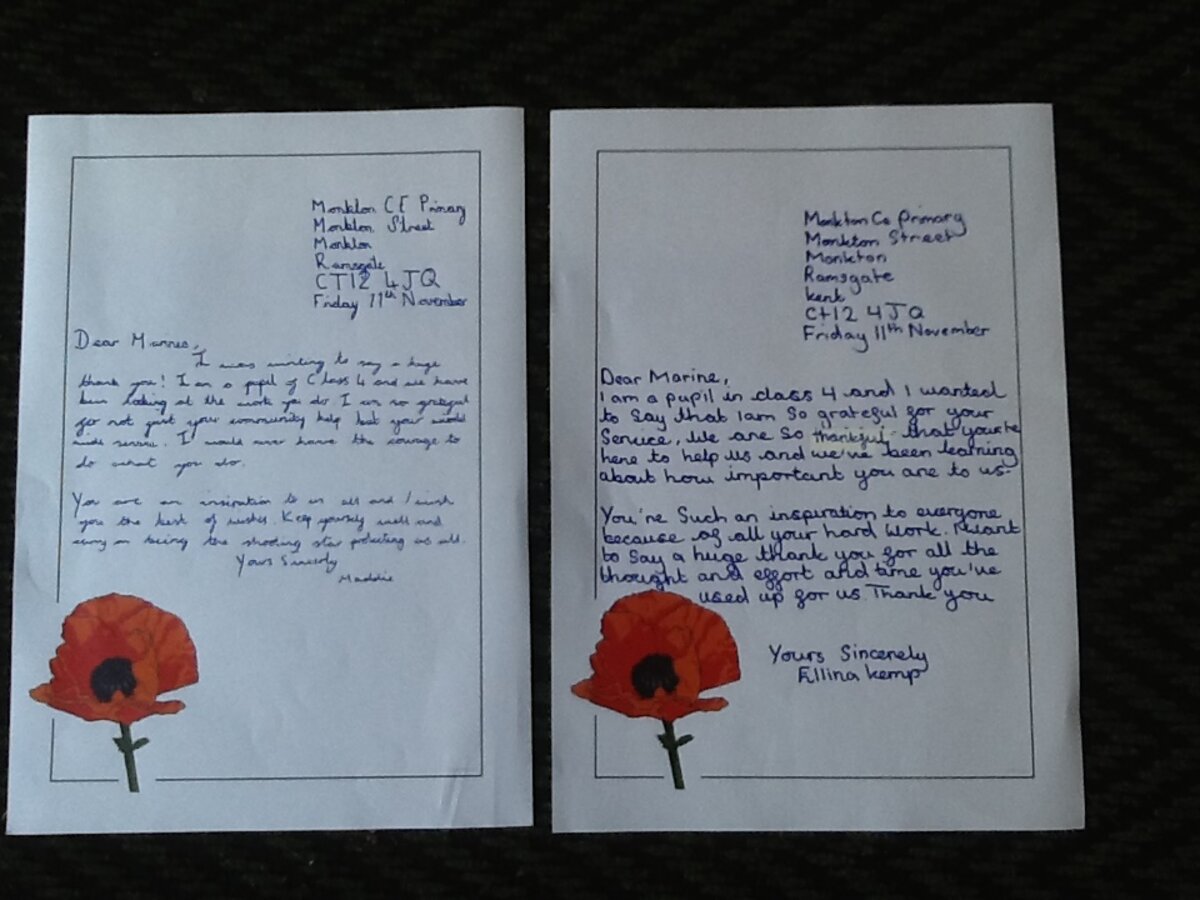 Monkton CE Primary
Monkton Street
Monkton
Ramsgate
CT12 4JQ
Friday 11th November
Dear Marines,
I was writing to say a huge
thank you! I am a pupil of Class 4 and we have
been looking at the work you do I am so grateful
for not just your community help but your world
wide service. I would never have the courage to
do what you do.
You are an insiration to us all and I wish
you the best of wishes. Keep yourself well and
carry on being the shooting star protecting us all.
Yours Sincerly
Maddie
Monkton Ce primary
Monkton Street
Monkton
Ramsgate
kent
Ct12 4JQ
Friday 11th November
Dear Marine,
I am a pupil in class 4 and I wanted
to say that I am So grateful for your
Service. We are so thankful that your're
here to help us and we've been learning
about how important you are to us.
You're Such an inspiration to everyone
because of all your hard work. I want
to say a huge thank you for all the
thought and effort and time you've
used up for us. Thank you
Yours Sincerely
Ellina kemp